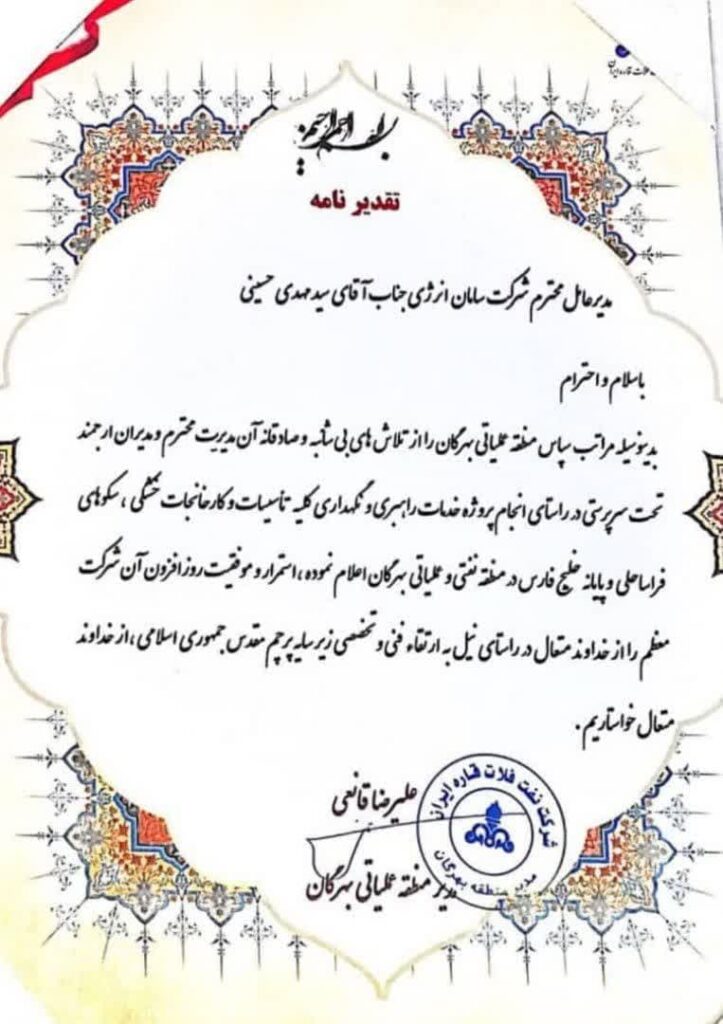 لات قاره ایران
بسم الله الرحمن الرحیم
تقدیر نامه
مدیرعامل محترم شرکت سامان انرژی جناب آقای سید مهدی حسینی
باسلام و احترام
بدینوسیله مراتب سپاس منطقه عملیاتی بهرگان را از تلاش های بی شائبه و صادقانه آن مدیریت محترم و مدیران ارجمند
تحت سرپرستی در راستای انجام پروژه خدمات راهبری و نگهداری کلیه تأسیسات و کارخانجات خشکی ، سکوهای
فراساحلی و پایانه خلیج فارس در منطقه نفتی و عملیاتی بهرگان اعلام نموده ، استمرار و موفقیت روز افزون آن شرکت
معظم را از خداوند متعال در راستای نیل به ارتقاء فنی و تخصصی زیر سایه پرچم مقدس جمهوری اسلامی ، از خداوند
متعال خواستاریم .
علیرضا قانعی
مدیر منطقه عملیاتی بهرگان
شرکت نفت فلات قاره ایران
مدیر منطقه بهرگان